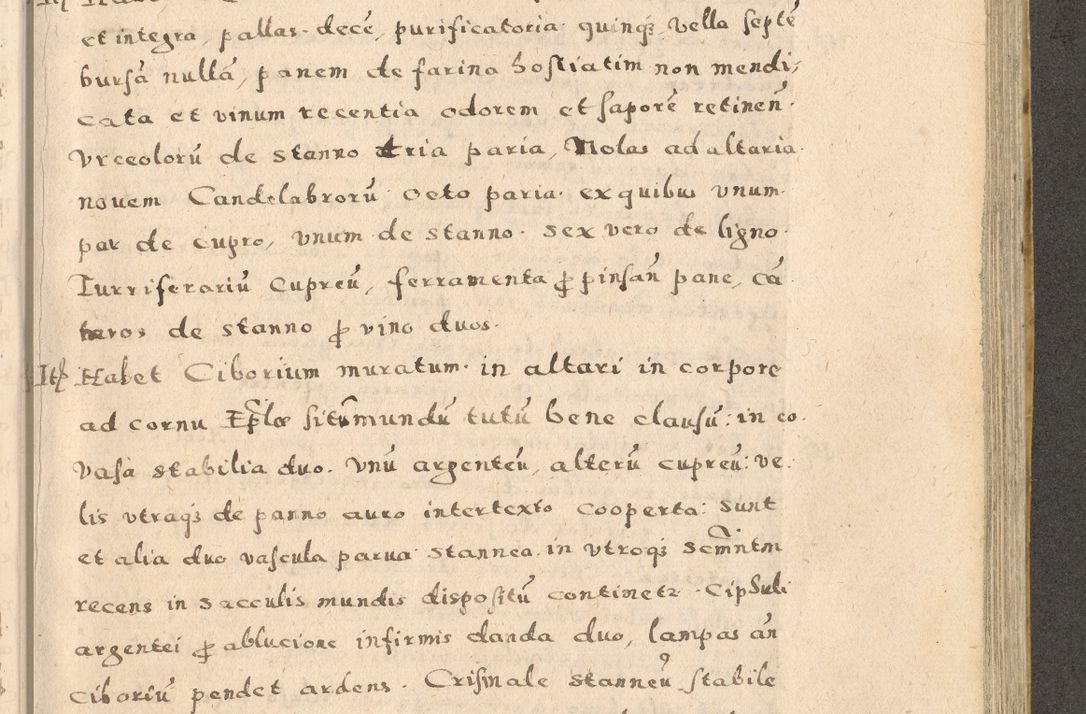 et integra, pallas decē, purificatoria quinqȝ, vella septē
bursā nullā, panem de farina hostiatim non mendi,
cata et vinum recentia odorem et saporē retinen̄.
Vrceolorū de stanno tria paria, Nolas ad altaria
nouem Candelabrorū octo paria ex quibus vnum
par de cupro, vnum de stanno. sex vero de ligno.
Turriferariū Cupreū, ferramenta ꝓ pinsan̄ pane, cā
teros de stanno ꝓ vino duos.
Itē Habet Ciborium muratum. in altari in corpore
ad cornu Ep̄læ sitū mundū tutū bene clausū: in eo.
Vasa stabilia duo. Vnū argenteū, alterū cupreū: ve.
lis vtraqȝ de panno auro intertexto Cooperta: Sunt
et alia duo vascula parua stannea. in vtroqȝ Scm̄ntm
recens in sacculis mundis dispositū continetr.
argentei ꝓ ablucione infirmis danda duo, lampas an̄
Ciboriū pendet ardens. Crismale stanneū stabile